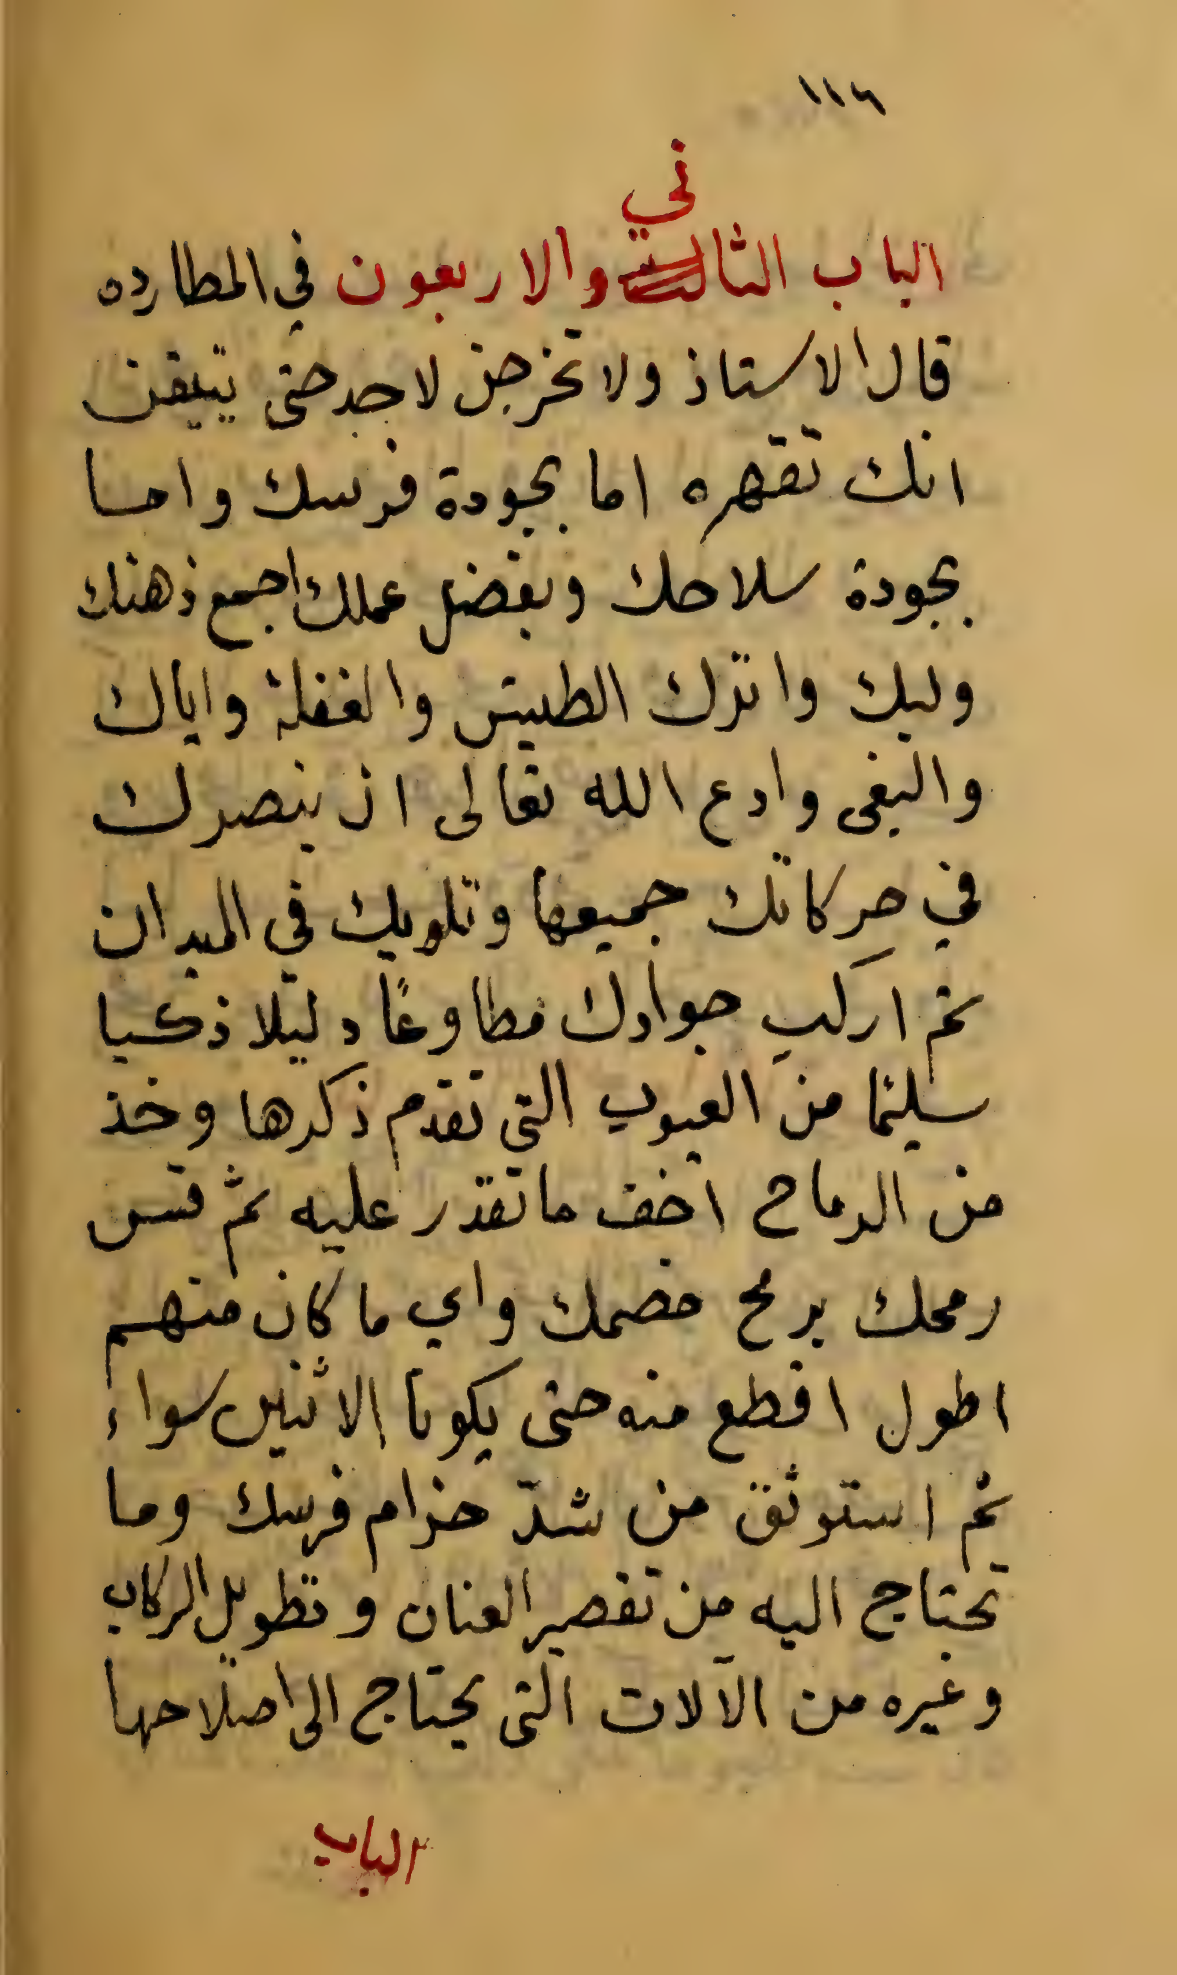 ١١٦
ني
الباب الثالث والاربعون في المطارده
قال الاستاذ ولا تخرجن لاحد حتى تتيقن
انك تقهره اما بجودة فرسك واما
بجودة سلاحك وبفضل عملك اجمع ذهنك
ولبك واترك الطيش والغفلة واياك
والبغى وادع الله تعالى ان ينصرك
في حركاتك جميعها وتلويك في الميدان
ثم اركب جوادك مطاوعًا دليلا ذكيا
سليما من العيوب التي تقدم ذكرها وخذ
من الرماح اخف ما تقدر عليه ثم قس
رمحك برمح خصمك واي ما كان منهم
اطول اقطع منه حتى يكونا الاثنين سواء
ثم استوثق من شدّ حزام فرسك وما
تحتاج اليه من تقصير العنان وتطويل الركاب
وغيره من الآلات التي يحتاج الى اصلاحها
الباب